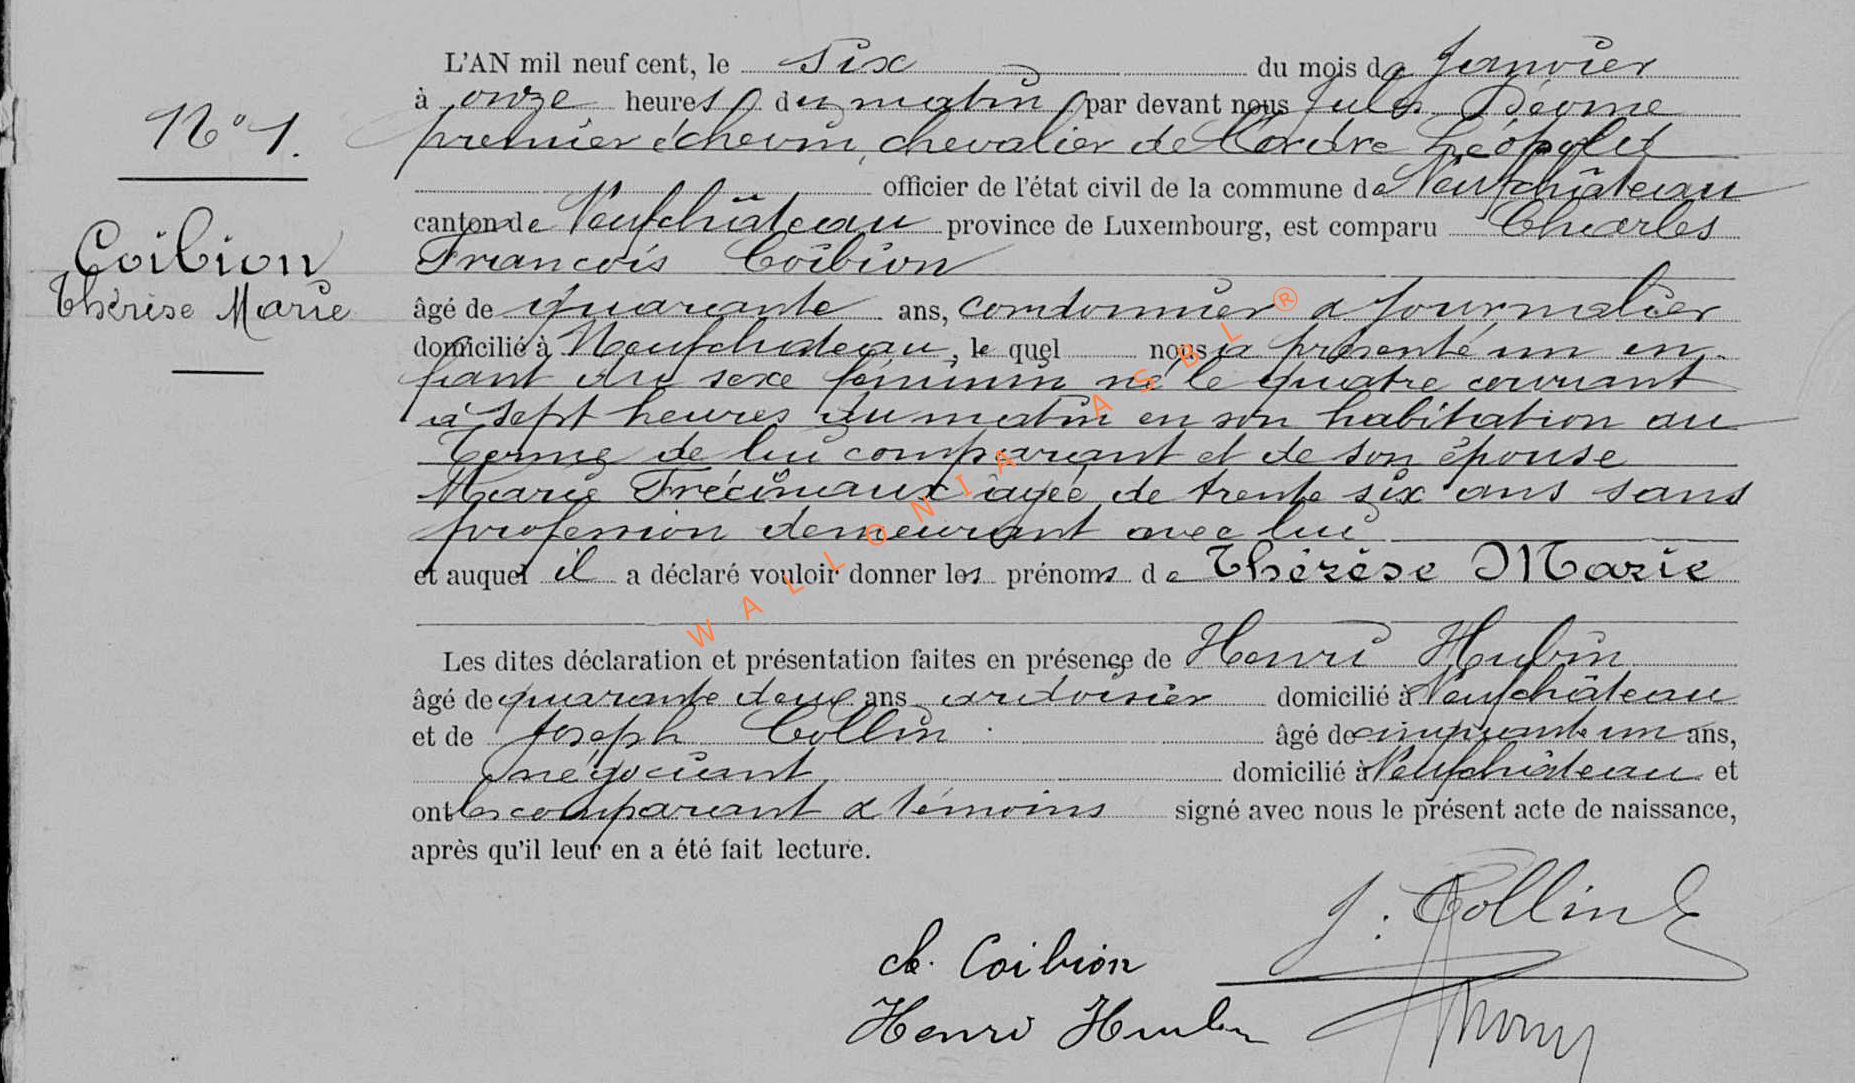 L'AN mil neuf cent, le six du mois de Janvier
à onze heures du matin par devant nous Jules
N° 1. premier échevin, chevalier de l'ordre Léopold
officier de l'état civil de la commune de Neufchâteau
canton de Neufchâteau province de Luxembourg, est comparu Charles
Coibion François Coibion
Thérèse Marie âgé de quarante ans, cordonnier & journalier
domicilié à Neufchateau, le quel nous a présenté un en-
fant du sexe féminin né le quatre courant
à sept heures du matin en son habitation au
de lui comparant et de son épouse
Marie âgée de trente six ans sans
profession demeurant avec lui
et auquel il a déclaré vouloir donner les prénoms de Thérèse Marie
Les dites déclaration et présentation faites en présence de Henri Hubin
âgé de quarante deux ans ardoisier domicilié à Neufchâteau
et de Joseph Collin âgé de cinquante un ans,
négociant domicilié à Neufchâteau et
ont les comparant & témoins signé avec nous le présent acte de naissance,
après qu'il leur en a été fait lecture.
J. Collin
ch. Coibion
Henri Hubin
WALLONIA ASBL ®